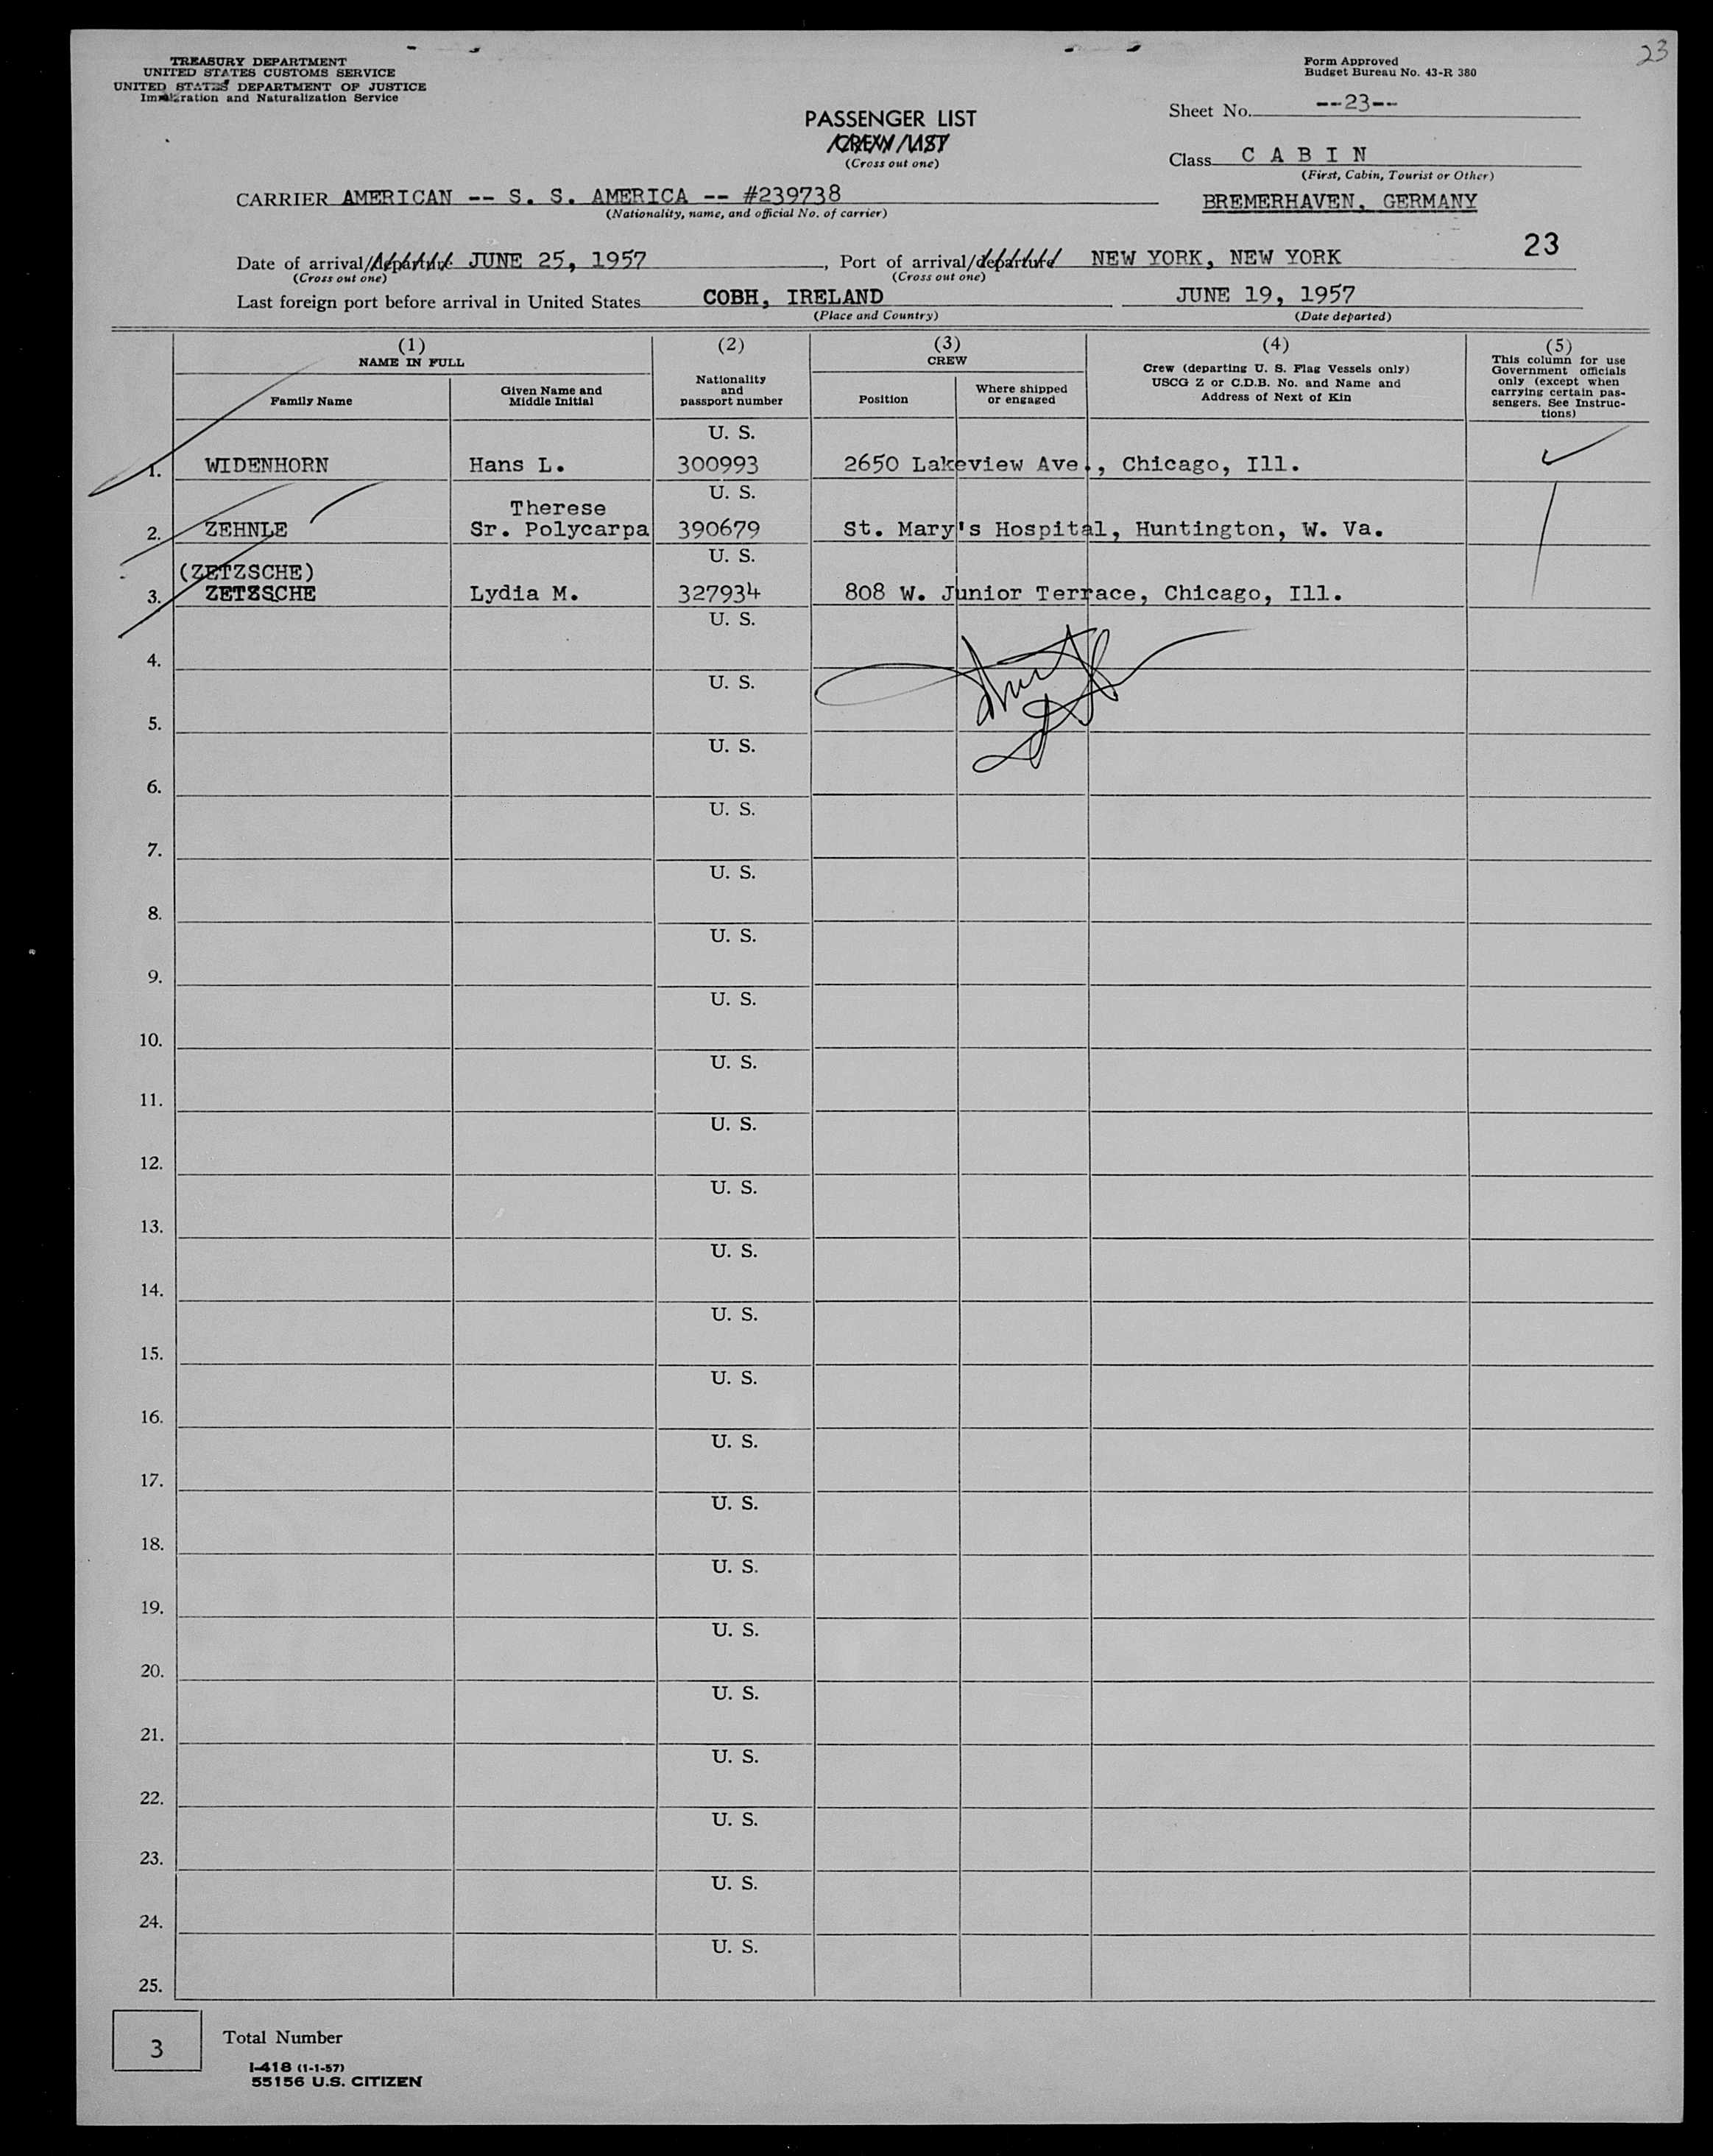 23
TREASURY DEPARTMENT
UNITED STATES CUSTOMS SERVICE
UNITED STATES DEPARTMENT OF JUSTICE
Immigration and Naturalization Service
Form Approved
Budget Bureau No. 43-R 380
Sheet No. --23--
PASSENGER LIST
CREW LIST
(Cross out one)
Class C A B I N
(First, Cabin, Tourist or Other)
CARRIER AMERICAN -- S. S. AMERICA -- #239738
(Nationality, name, and official No. of carrier)
BREMERHAVEN, GERMANY
23
Date of arrival/departure JUNE 25, 1957, Port of arrival/departure NEW YORK, NEW YORK
(Cross out one) (Cross out one)
Last foreign port before arrival in United States COBH, IRELAND JUNE 19, 1957
(Place and Country) (Date departed)
(1) (2) (3) (4) (5)
NAME IN FULL
Family Name
Given Name and
Middle Initial
Nationality
and
passport number
CREW
Position
Where shipped
or engaged
Crew (departing U. S. Flag Vessels only)
USCG Z or C.D.B. No. and Name and
Address of Next of Kin
This column for use
Government officials
only (except when
carrying certain pas-
sengers. See Instruc-
tions)
U. S.
1. WIDENHORN Hans L. 300993 2650 Lakeview Ave., Chicago, Ill.
U. S.
Therese
2. ZEHNLE Sr. Polycarpa 390679 St. Mary's Hospital, Huntington, W. Va.
U. S.
(ZETZSCHE)
3. ZETZSCHE Lydia M. 327934 808 W. Junior Terrace, Chicago, Ill.
U. S.
4.
U. S.
5.
U. S.
6.
U. S.
7.
U. S.
8.
U. S.
9.
U. S.
10.
U. S.
11.
U. S.
12.
U. S.
13.
U. S.
14.
U. S.
15.
U. S.
16.
U. S.
17.
U. S.
18.
U. S.
19.
U. S.
20.
U. S.
21.
U. S.
22.
U. S.
23.
U. S.
24.
U. S.
25.
3 Total Number
I-418 (1-1-57)
55156 U.S. CITIZEN